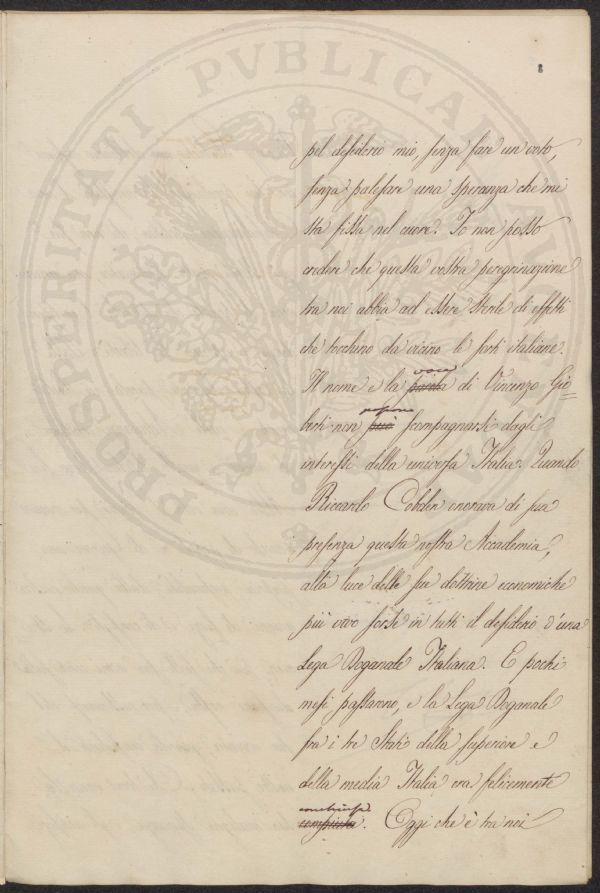 PROSPERITATI PVBLICAE
pel desiderio mio, senza fare un voto,
senza palesare una speranza che mi
sta fissa nel cuore? Io non posso
credere che questa vostra peregrinazione
tra noi abbia ad essere sterile di effetti
che tocchino da vicino le sorti italiane.
voce
Il nome e la parola di Vincenzo Gio=
possono
berti non può scompagnarsi dagli
interessi della universa Italia. Quando
Riccardo Cobden onorava di sua
presenza questa nostra Accademia,
alla luce delle sue dottrine economiche
più vivo sorse in tutti il desiderio d'una
Lega Doganale Italiana. E pochi
mesi passarono, e la Lega Doganale
fra i tre Stati della superiore e
della media Italia era felicemente
conchiusa
compiuta. Oggi che è tra noi